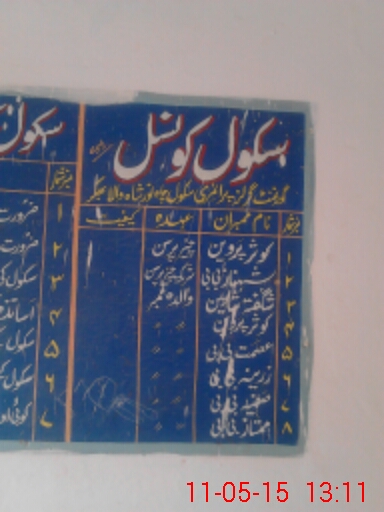 سکول کونسل
گورنمنٹ گرلز پرائمری سکول چاہ نور شاہ والا بھکر
نمبر شمار نام ممبران عہدہ کیفیت
۱ کوثر پروین چیئر پرسن
۲ شہناز بی بی شریک چیئر پرسن
۳ شگفتہ شاہین والدہ ممبر
۴ کوثر پروین 〃 〃
۵ عصمت بی بی 〃 〃
۶ زرینہ بی بی 〃 〃
۷ صفیہ بی بی 〃 〃
۸ ممتاز بی بی 〃 〃
سکول
نمبر شمار
۱ ضرورت
۲ ضرورت
۳ سکول
۴ اساتذہ
۵ سکول
۶ سکول
۷ کوئی
11-05-15 13:11